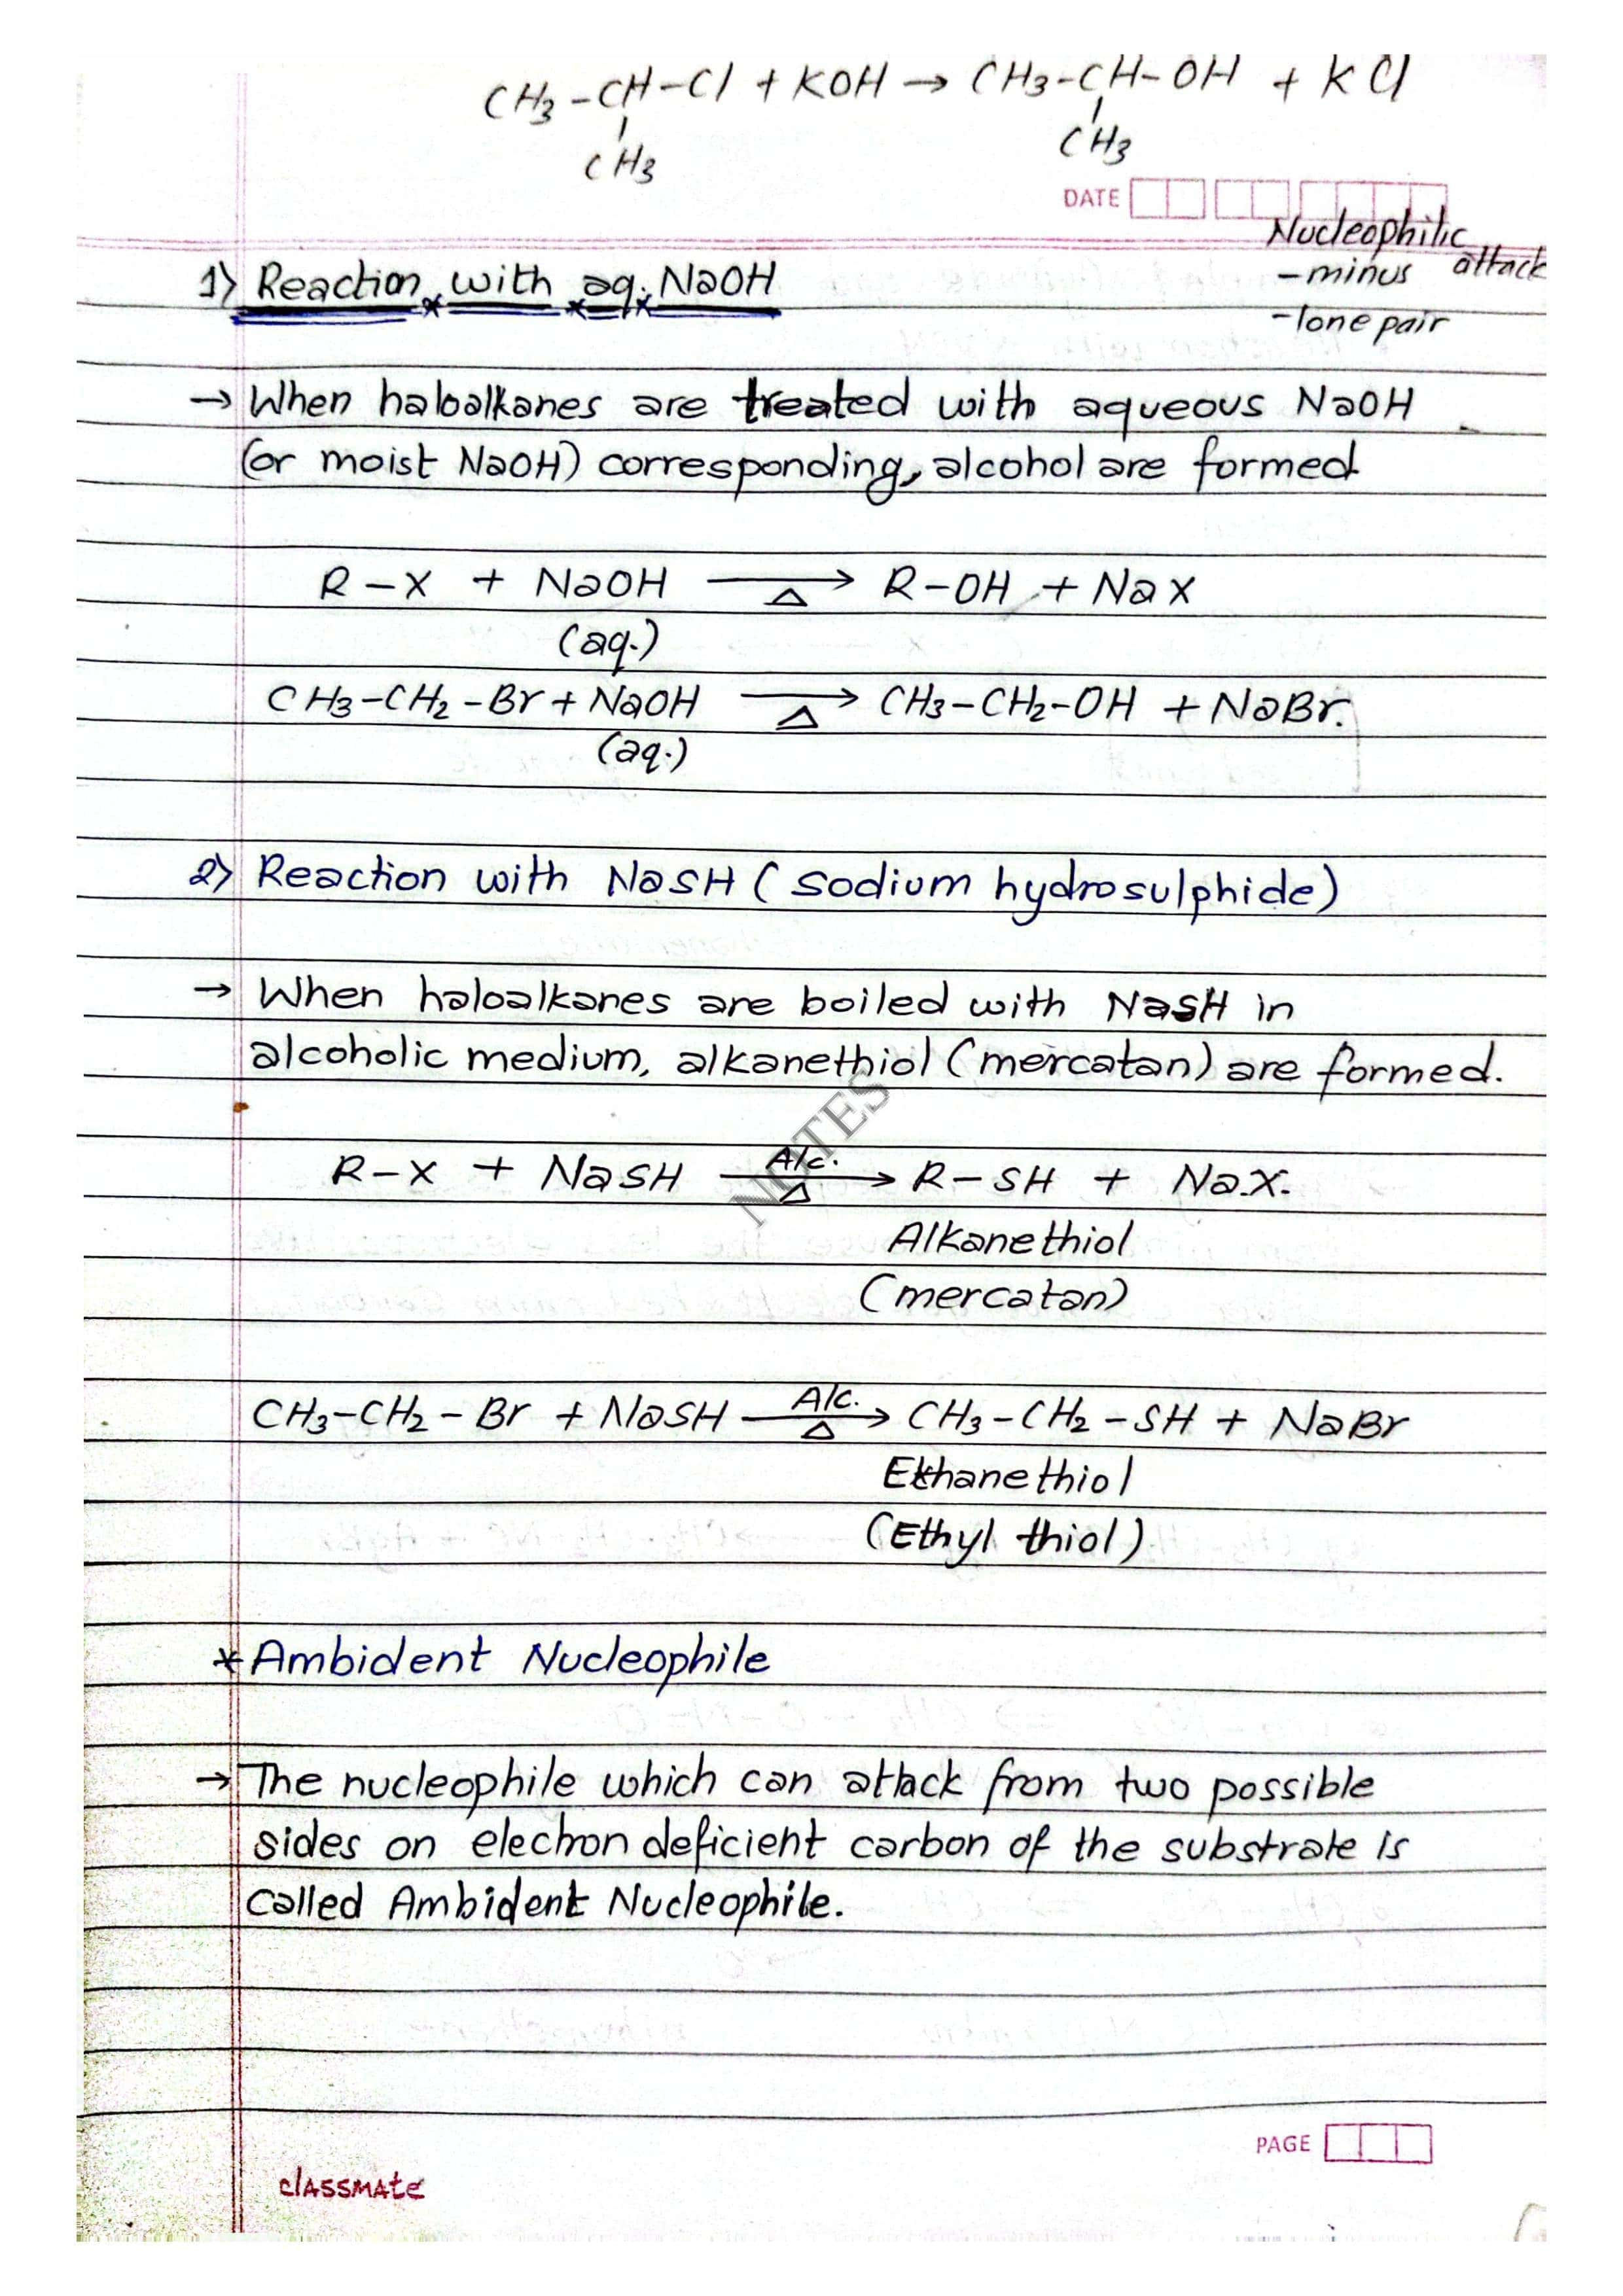 CH3-CH-Cl + KOH → CH3-CH-OH + KCl
CH3 CH3
DATE
Nucleophilic attack
-minus
-lone pair
1) Reaction with aq. NaOH
→ When haloalkanes are treated with aqueous NaOH
(or moist NaOH) corresponding, alcohol are formed
R-X + NaOH →Δ R-OH + NaX
(aq.)
CH3-CH2-Br + NaOH →Δ CH3-CH2-OH + NaBr.
(aq.)
2) Reaction with NaSH (sodium hydrosulphide)
→ When haloalkanes are boiled with NaSH in
alcoholic medium, alkanethiol (mercatan) are formed.
NOTES
R-X + NaSH Alc.→Δ R-SH + Na.X.
Alkanethiol
(mercatan)
CH3-CH2-Br + NaSH Alc.→Δ CH3-CH2-SH + NaBr
Ethanethiol
(Ethyl thiol)
* Ambident Nucleophile
→ The nucleophile which can attack from two possible
sides on electron deficient carbon of the substrate is
called Ambident Nucleophile.
PAGE
classmate